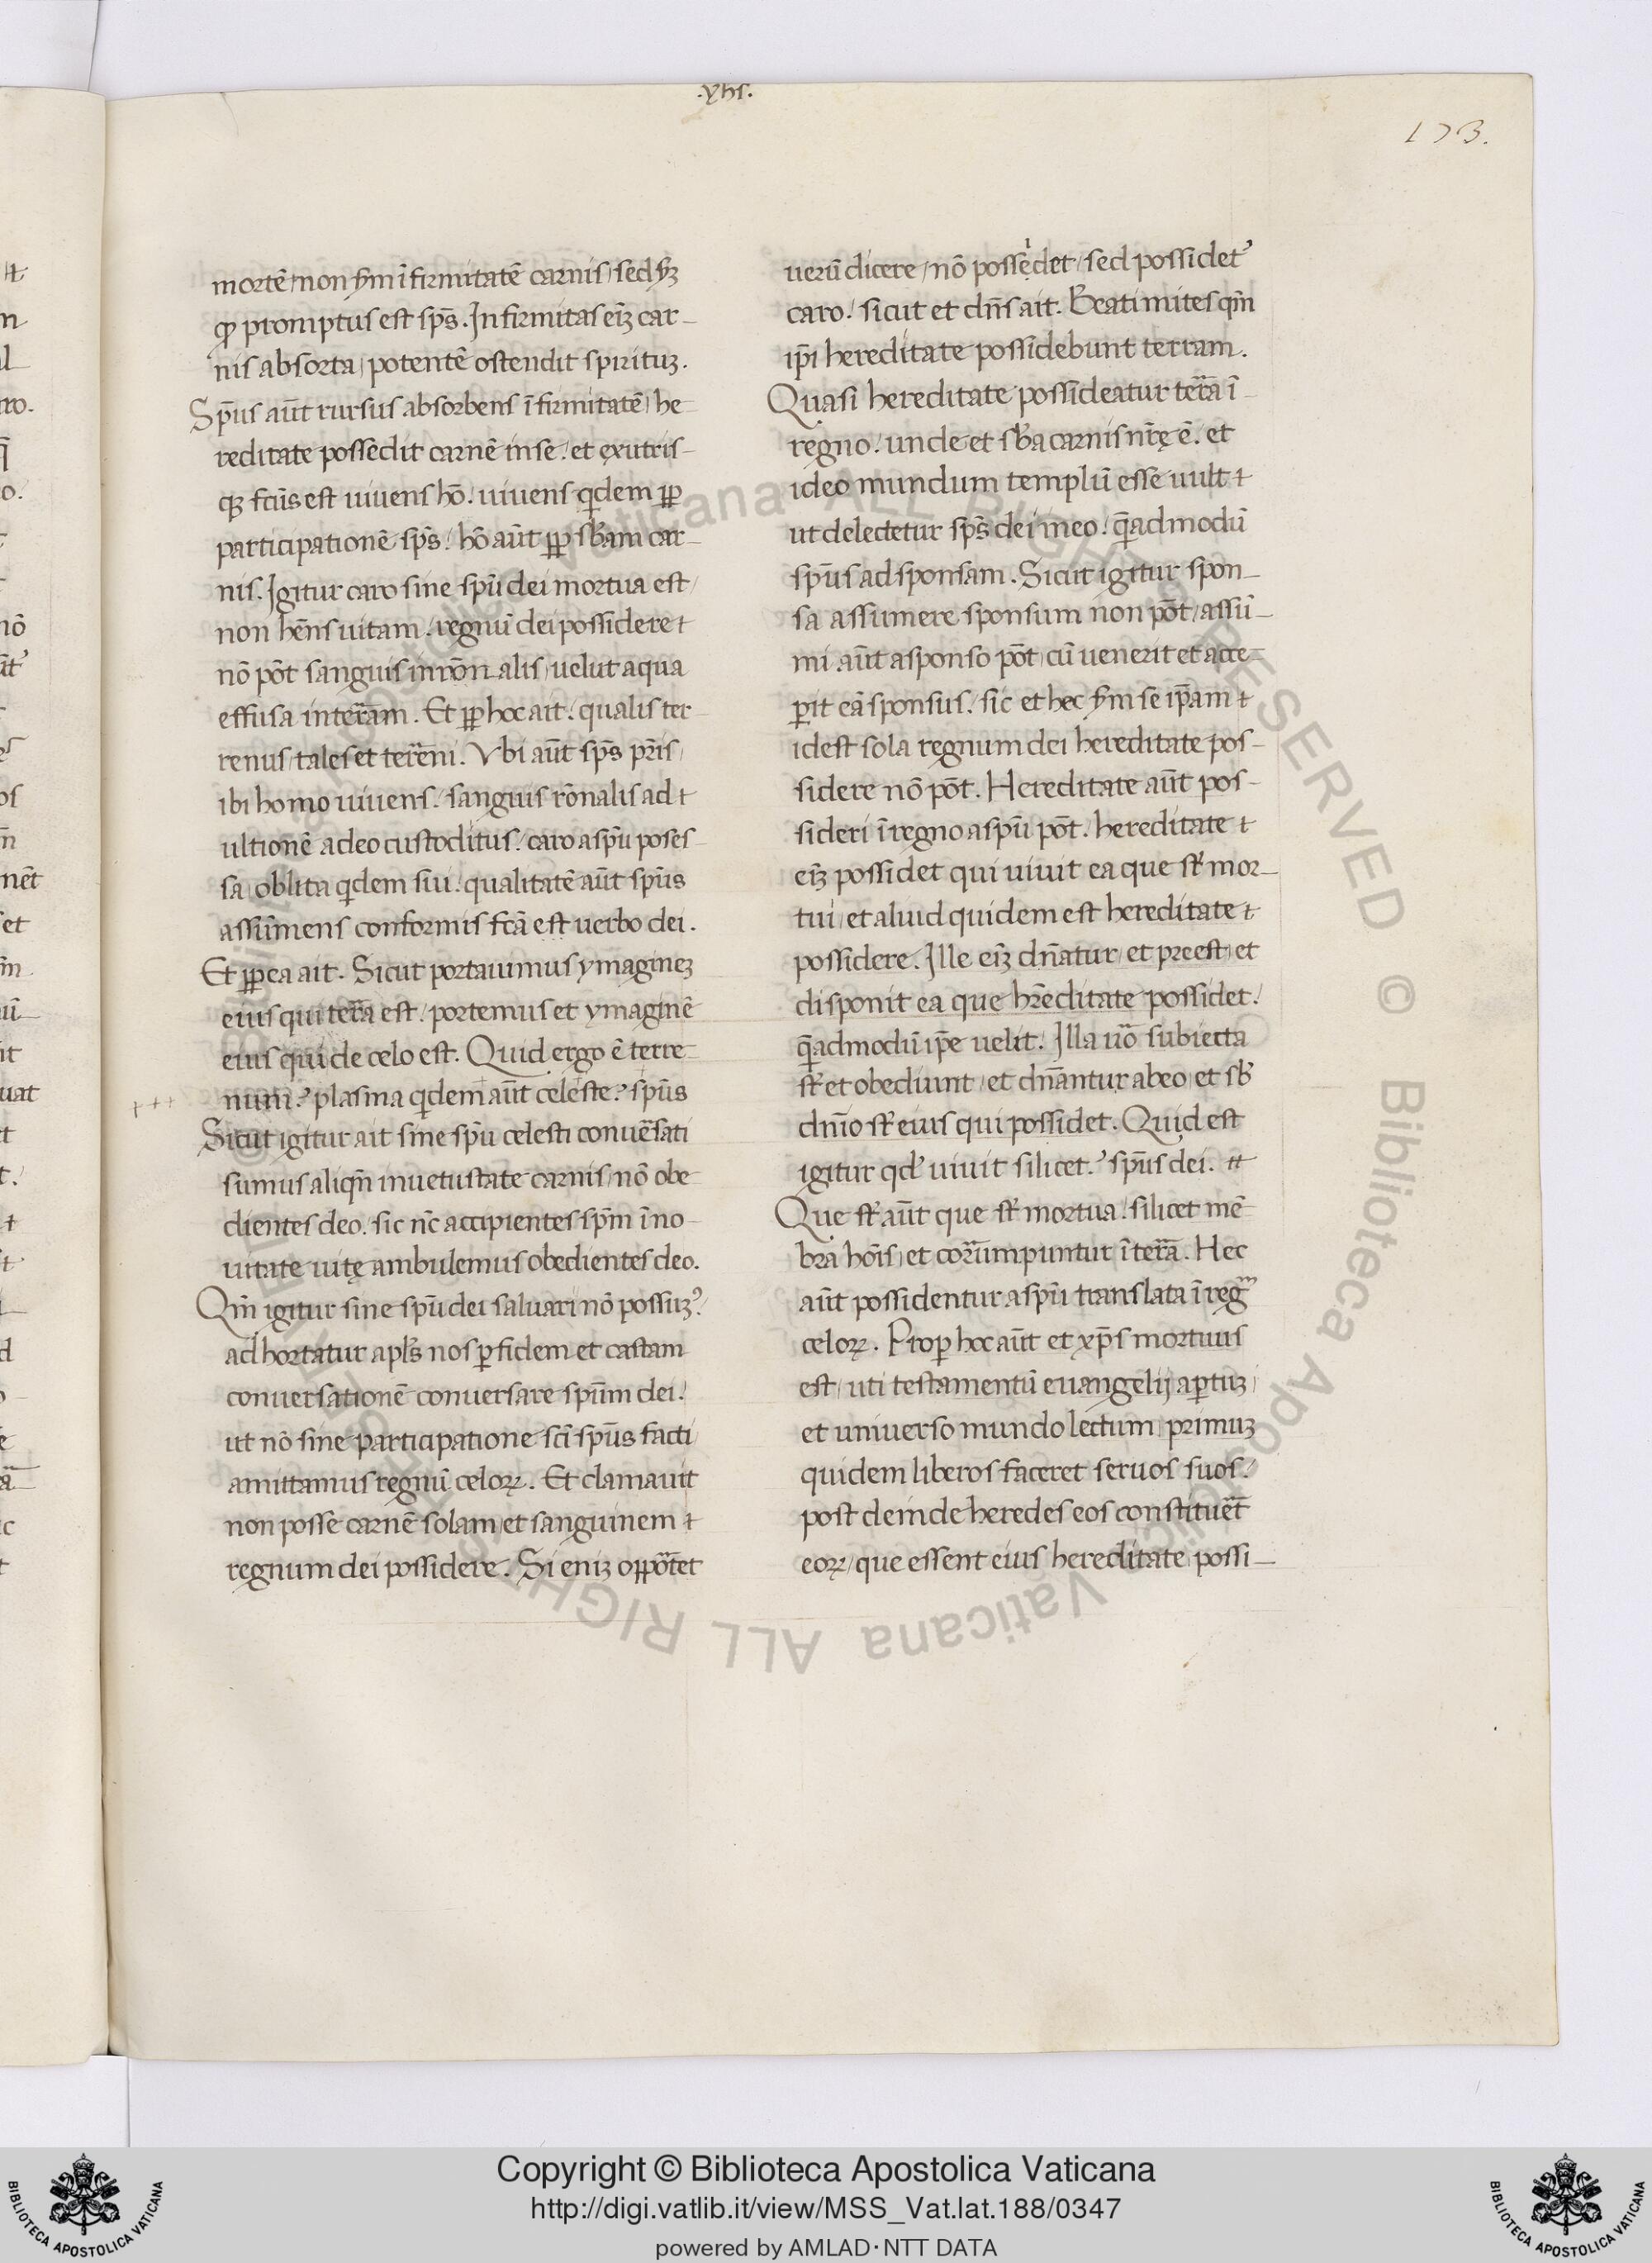 .yhs.
173.
mortē/non s̄m īfirmitatē carnis/sed s̄ꝫ
ꝙ promptus est sp̄s. Infirmitas eīꝫ car-
nis absorta/potentē ostendit spirituꝫ.
Sp̄us aūt rursus absorbens īfirmitatē/he
reditate possedit carnē in se/et ex utris-
qꝫ fcūs est uiuens hō. uiuens qdem ꝓp
participationē sp̄s/hō aūt ꝓp sb̄am car-
nis. Igitur caro sine spū dei mortua est/
non hēns uitam/regnū dei possidere
nō pōt sanguis inrōnalis/uelut aqua
effusa in terām. Et ꝓp hoc ait. qualis ter
renus/tales et terēni. Vbi aūt sp̄s pr̄is/
ibi homo uiuens/sanguis rōnalis ad
ultionē a deo custoditus/caro a spū poses-
sa/oblita qdem sui/qualitatē aūt spūs
assumens conformis fcā est uerbo dei.
Et ꝓp ea ait. Sicut portauimus ymagineꝫ
eius qui terā est/portemus et ymaginē
eius qui de celo est. Quid ergo ē terre
+++ num? plasma qdem aūt celeste? spūs
Sicut igitur ait sine spū celesti conuēsati
sumus aliqn̄ in uetustate carnis/nō obe
dientes deo/sic nc̄ accipientes spm̄ ī no-
uitate uitę ambulemus obedientes deo.
Qm̄ igitur sine spū dei saluari nō possuꝫ?
ad hortatur apls̄ nos ꝑ fidem et castam
conuersationē conuersare spūm dei/
ut nō sine participatione scī spūs facti
amittamus regnū celoꝝ. Et clamauit
non posse carnē solam/et sanguinem
regnum dei possidere. Si eniꝫ oppōtet
uerū dicere/nō possẹidet/sed possidet'
caro/sicut et dn̄s ait. Beati mites qm̄
ip̄i hereditate possidebunt terram.
Quasi hereditate possideatur terā ī
regno/unde et sb̄a carnis nr̄ę ē. et
ideo mundum templū esse uult
ut delectetur sp̄s dei in eo/q̄admodū
spūs ad sponsam. Sicut igitur spon-
sa assumere sponsum non pōt/assū-
mi aūt a sponso pōt/cū uenerit et acce-
ꝑit eā sponsus/sic et hec s̄m se ip̄am
idest sola regnum dei hereditate pos-
sidere nō pōt. Hereditate aūt pos-
sideri ī regno a spū pōt. hereditate
eīꝫ possidet qui uiuit ea que st' mor-
tui/et aluid quidem est hereditate
possidere. Ille eīꝫ dn̄atur/et preest/et
disponit ea que hrēditate possidet/
q̄admodū ip̄e uelit. Illa uō subiecta
st' et obediunt/et dn̄antur ab eo/et sb'
dnīo st' eius qui possidet. Quid est
igitur qd' uiuit silicet? spūs dei.
Que st' aūt que st' mortua/silicet mē-
bra hōis/et corūmpuntur ī terā. Hec
aūt possidentur a spū translata ī reg̃
celoꝝ. Prop hoc aūt et xp̄s mortuus
est/uti testamentū euangelij aꝑtuꝫ/
et uniuerso mundo lectum/primuꝫ
quidem liberos faceret seruos suos/
post deinde heredes eos constituēt
eoꝝ/que essent eius hereditate possi-
Copyright © Biblioteca Apostolica Vaticana
http://digi.vatlib.it/view/MSS_Vat.lat.188/0347
powered by AMLAD·NTT DATA